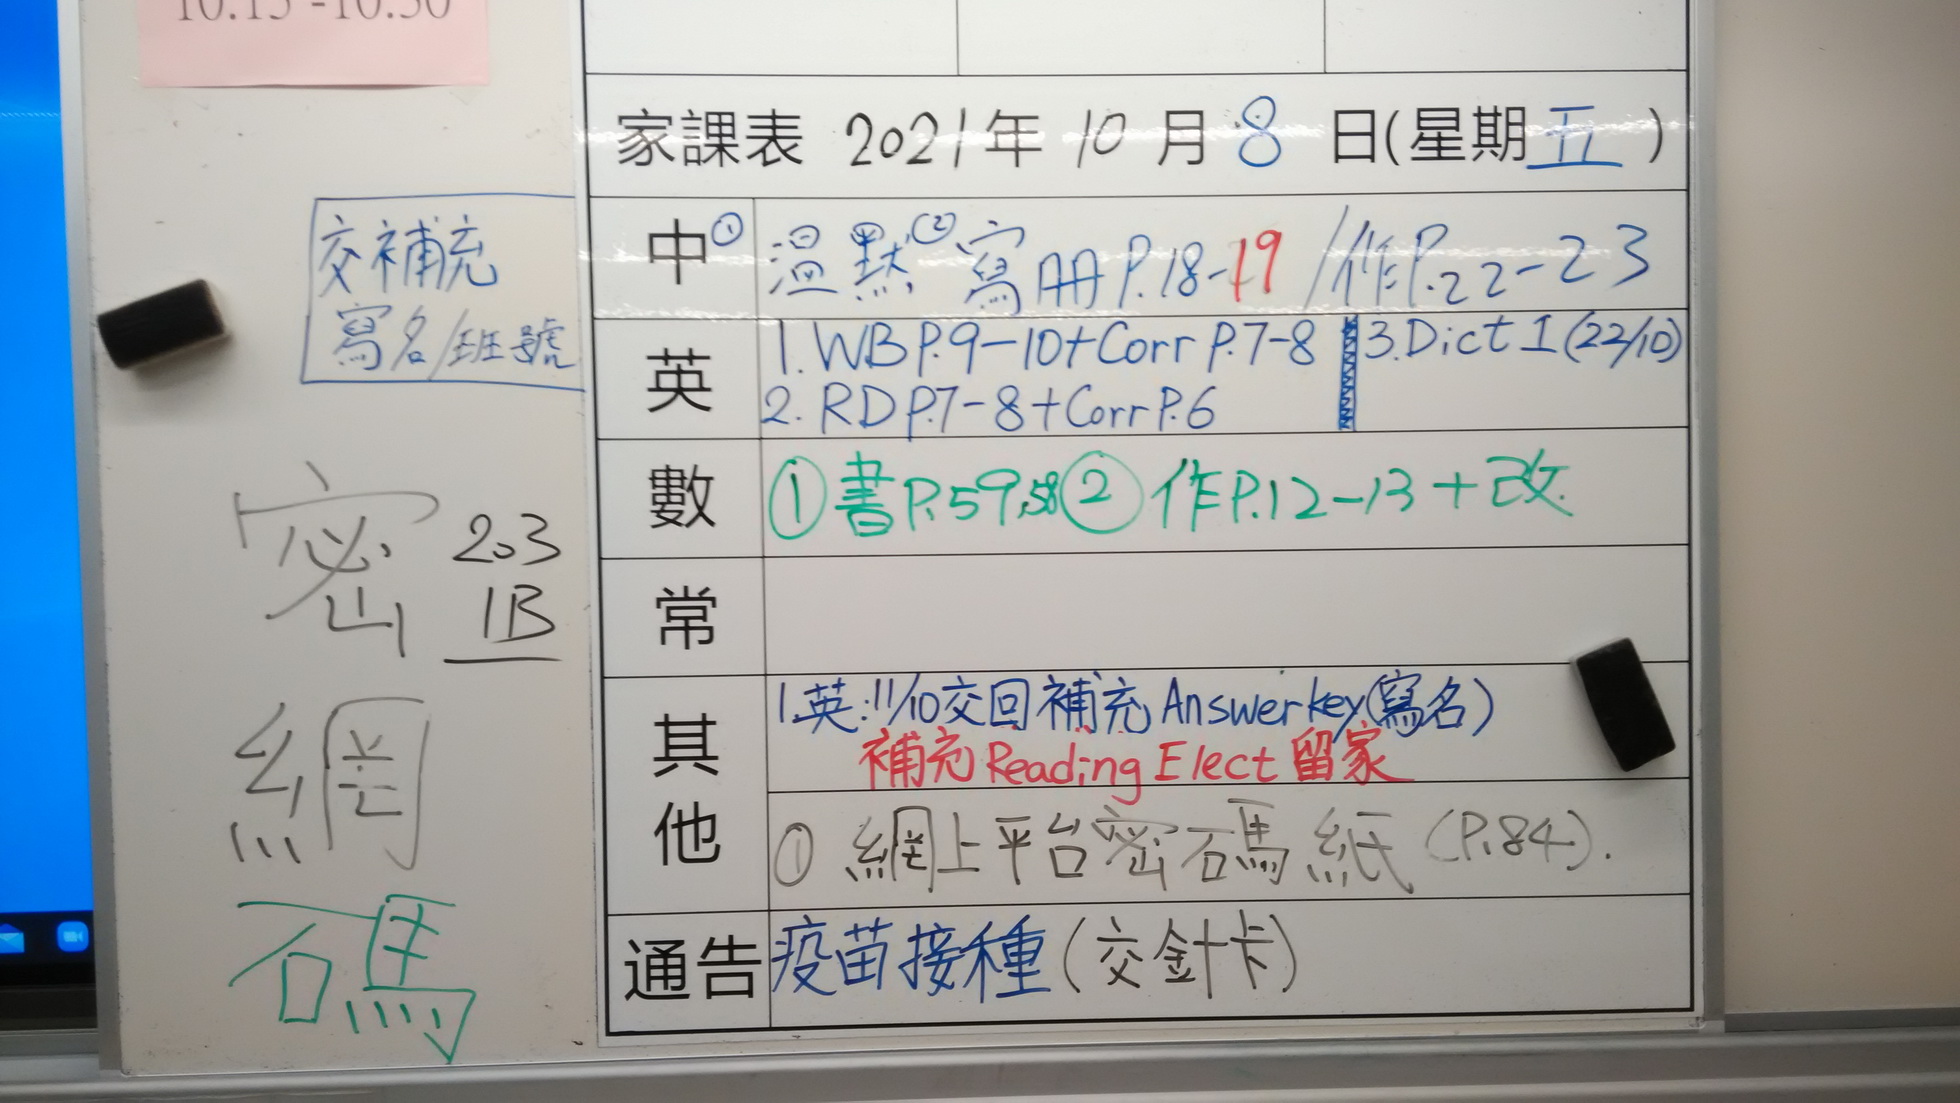 10:15-10:30
家課表 2021年 10 月 8 日(星期五)
交補充
寫名/班號
中 ① 溫默 ② 寫AA P.18-19 / 作P.22-23
英 1. WB P.9-10+Corr P.7-8 3. Dict 1 (22/10)
2. RD P.7-8+Corr P.6
數 ① 書P.59,58 ② 作P.12-13+改
常
密 203
1B
網
碼
其他 1.英:11/10交回補充Answer key(寫名)
補充Reading Elect留家
① 網上平台密碼紙 (P.84).
通告 疫苗接種(交針卡)